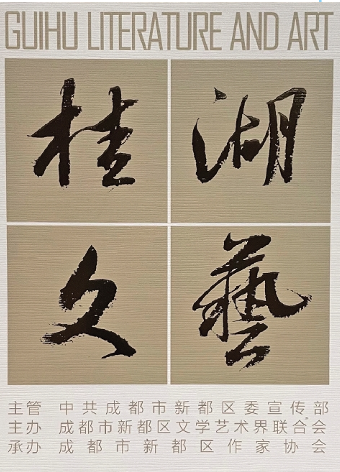 GUIHU LITERATURE AND ART
桂湖
文藝
主管 中共成都市新都区委宣传部
主办 成都市新都区文学艺术界联合会
承办 成都市新都区作家协会